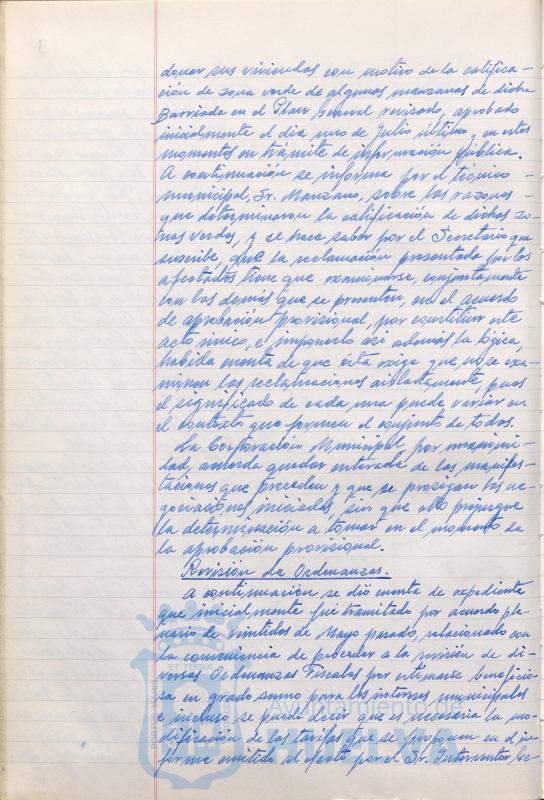 donar sus viviendas con motivo de la califica-
ción de zona verde de algunas manzanas de dicha
Barriada en el Plan General revisado, aprobado
inicialmente el dia uno de Julio último, en estos
momentos en trámite de información pública.
A continuación se informa por el técnico
municipal, Sr. Manzano, sobre las razones
que determinaron la calificación de dichas zo-
nas verdes, y se hace saber por el Secretario que
suscribe, que la reclamación presentada por los
afectados tiene que examinarse, conjuntamente
con las demás que se presenten, en el acuerdo
de aprobación provisional, por constituir este
acto único, e imponerlo así además la lógica,
habida cuenta de que ésta exige que no se exa-
minen las reclamaciones aisladamente, pues
el significado de cada una puede variar en
el contexto que formen el conjunto de todas.
La Corporación Municipal por unanimi-
dad, acuerda quedar enterada de las manifes-
taciones que preceden y que se prosigan las ne-
gociaciones iniciadas sin que ello prejuzgue
la determinación a tomar en el momento de
la aprobación provisional.
Revisión de Ordenanzas.
A continuación se dió cuenta de expediente
que inicialmente fué tramitado por acuerdo ple-
nario de veintidos de Mayo pasado, relacionado con
la conveniencia de proceder a la revisión de di-
versas Ordenanzas Fiscales por estimarse beneficio-
sa en grado sumo para los intereses municipales
e incluso se puede decir que es necesaria la mo-
dificación de las tarifas que se proponen en el in-
forme emitido al efecto por el Sr. Interventor
Ayuntamiento de
HUELVA